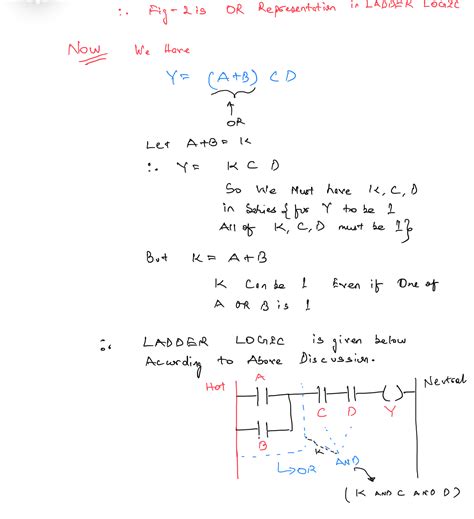 ∴ Fig-2 is OR Representation in LADDER LOGIC
Now We Have
Y = (A+B) C D
OR
Let A+B = K
∴ Y = K C D
So We Must have K, C, D
in Series { for Y to be 1
All of K, C, D must be 1}
But K = A+B
K Can be 1 Even if One of
A OR B is 1
∴ LADDER LOGIC is given below
According to Above Discussion.
Hot A Neutral
C D Y
B
K
OR AND
(K AND C AND D)